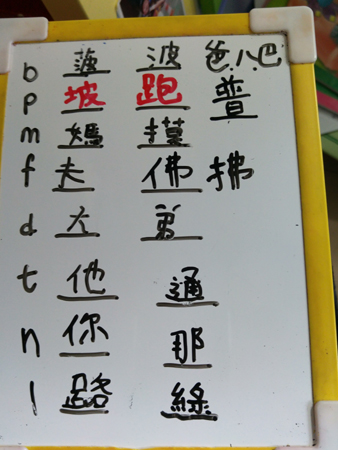 b 菠 波 爸.八.巴
p 坡 跑 普
m 媽 摸
f 夫 佛 拂
d 弟
t 他 通
n 你 那
l 路 綠